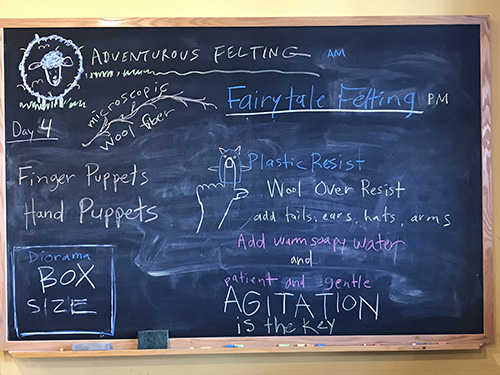 ADVENTUROUS FELTING AM
microscopic
wool fiber
Fairytale Felting PM
Day 4
Finger Puppets
Hand Puppets
Plastic Resist
Wool Over Resist
add tails, ears, hats, arms
Add warm soapy water
and
patient and gentle
AGITATION
is the key
Diorama
BOX
SIZE